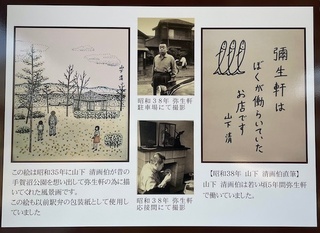 山下清
この絵は昭和35年に山下 清画伯が昔の
手賀沼公園を想い出して弥生軒の為に描
いてくれた風景画です。
この絵も以前駅弁の包装紙として使用し
ていました
昭和38年 弥生軒
駐車場にて撮影
昭和38年 弥生軒
応接間にて撮影
彌生軒は
ぼくが働らいていた
お店です
山下 清
【昭和38年 山下 清画伯直筆】
山下 清画伯は若い頃5年間弥生軒
で働いていました。